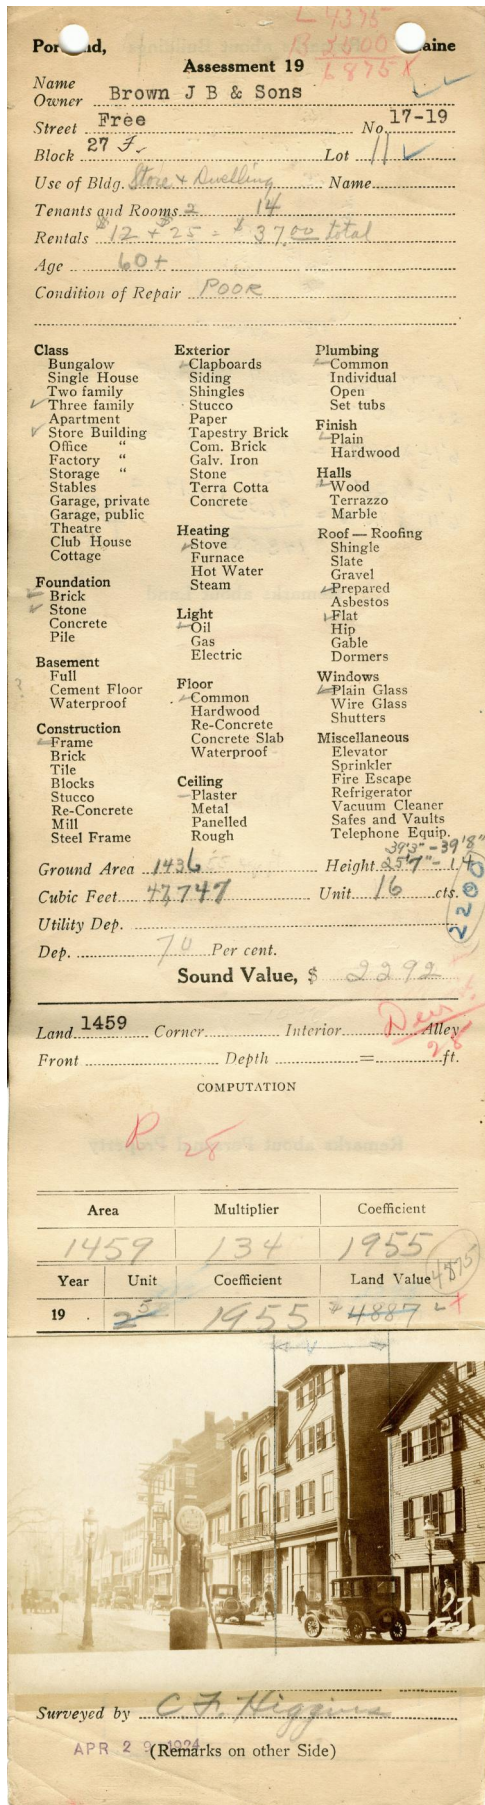 L 4375
B 2500
6875 X
Portland, Maine
Assessment 19
Name
Owner Brown J B & Sons
Street Free No. 17-19
Block 27 F. Lot 11 ✓
Use of Bldg. Store + Dwelling Name
Tenants and Rooms 2 14
Rentals $12 + $25 = $37.00 total
Age 60+
Condition of Repair POOR
Class
Bungalow
Single House
Two family
✓ Three family
Apartment
✓ Store Building
Office "
Factory "
Storage "
Stables
Garage, private
Garage, public
Theatre
Club House
Cottage
Foundation
✓ Brick
✓ Stone
Concrete
Pile
Basement
Full
? Cement Floor
Waterproof
Construction
✓ Frame
Brick
Tile
Blocks
Stucco
Re-Concrete
Mill
Steel Frame
Exterior
✓ Clapboards
Siding
Shingles
Stucco
Paper
Tapestry Brick
Com. Brick
Galv. Iron
Stone
Terra Cotta
Concrete
Heating
✓ Stove
Furnace
Hot Water
Steam
Light
✓ Oil
Gas
Electric
Floor
✓ Common
Hardwood
Re-Concrete
Concrete Slab
Waterproof
Ceiling
Plaster
Metal
Panelled
Rough
Plumbing
✓ Common
Individual
Open
Set tubs
Finish
✓ Plain
Hardwood
Halls
✓ Wood
Terrazzo
Marble
Roof — Roofing
Shingle
Slate
Gravel
✓ Prepared
Asbestos
✓ Flat
Hip
Gable
Dormers
Windows
✓ Plain Glass
Wire Glass
Shutters
Miscellaneous
Elevator
Sprinkler
Fire Escape
Refrigerator
Vacuum Cleaner
Safes and Vaults
Telephone Equip.
39'3" - 39'8"
Ground Area 1436 Height 25'7" - 14
Cubic Feet 47,747 Unit 16 cts.
2200
Utility Dep.
Dep. 70 Per cent.
Sound Value, $ 2292
Land 1459 Corner Interior Alley
Front Depth = ft.
28
COMPUTATION
R 28
Area Multiplier Coefficient
1459 134 1955
4875
Year Unit Coefficient Land Value
19 . 25 1955 $ 4887
Surveyed by C F. Higgins
APR 29 1924
(Remarks on other Side)